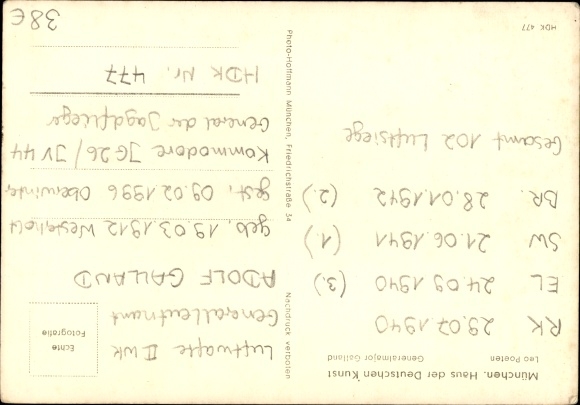 München. Haus der Deutschen Kunst
Leo Poeten
Generalmajor Galland
RK 29.07.1940
EL 24.09.1940 (3.)
SW 21.06.1941 (1.)
BR. 28.01.1942 (2.)
Gesamt 102 Luftsiege
HDK 477
Nachdruck verboten
Photo-Hoffmann München, Friedrichstraße 34
Echte
Fotografie
Luftwaffe II WK
Generalleutnant
ADOLF GALLAND
geb. 19.03.1912 Westerholt
gest. 09.02.1996 Oberwinter
Kommodore JG26/JV44
General der Jagdflieger
HDK Nr. 477
38€